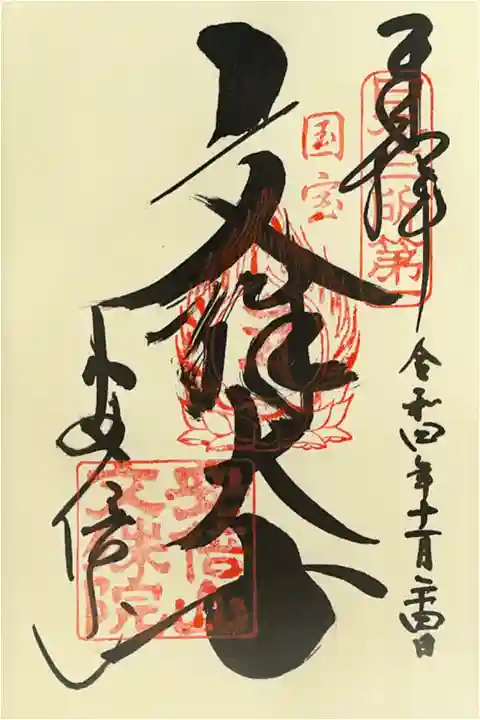 奉拝
国宝
文殊大士
安倍山
安倍山
文殊院
令和四年十一月二十四日